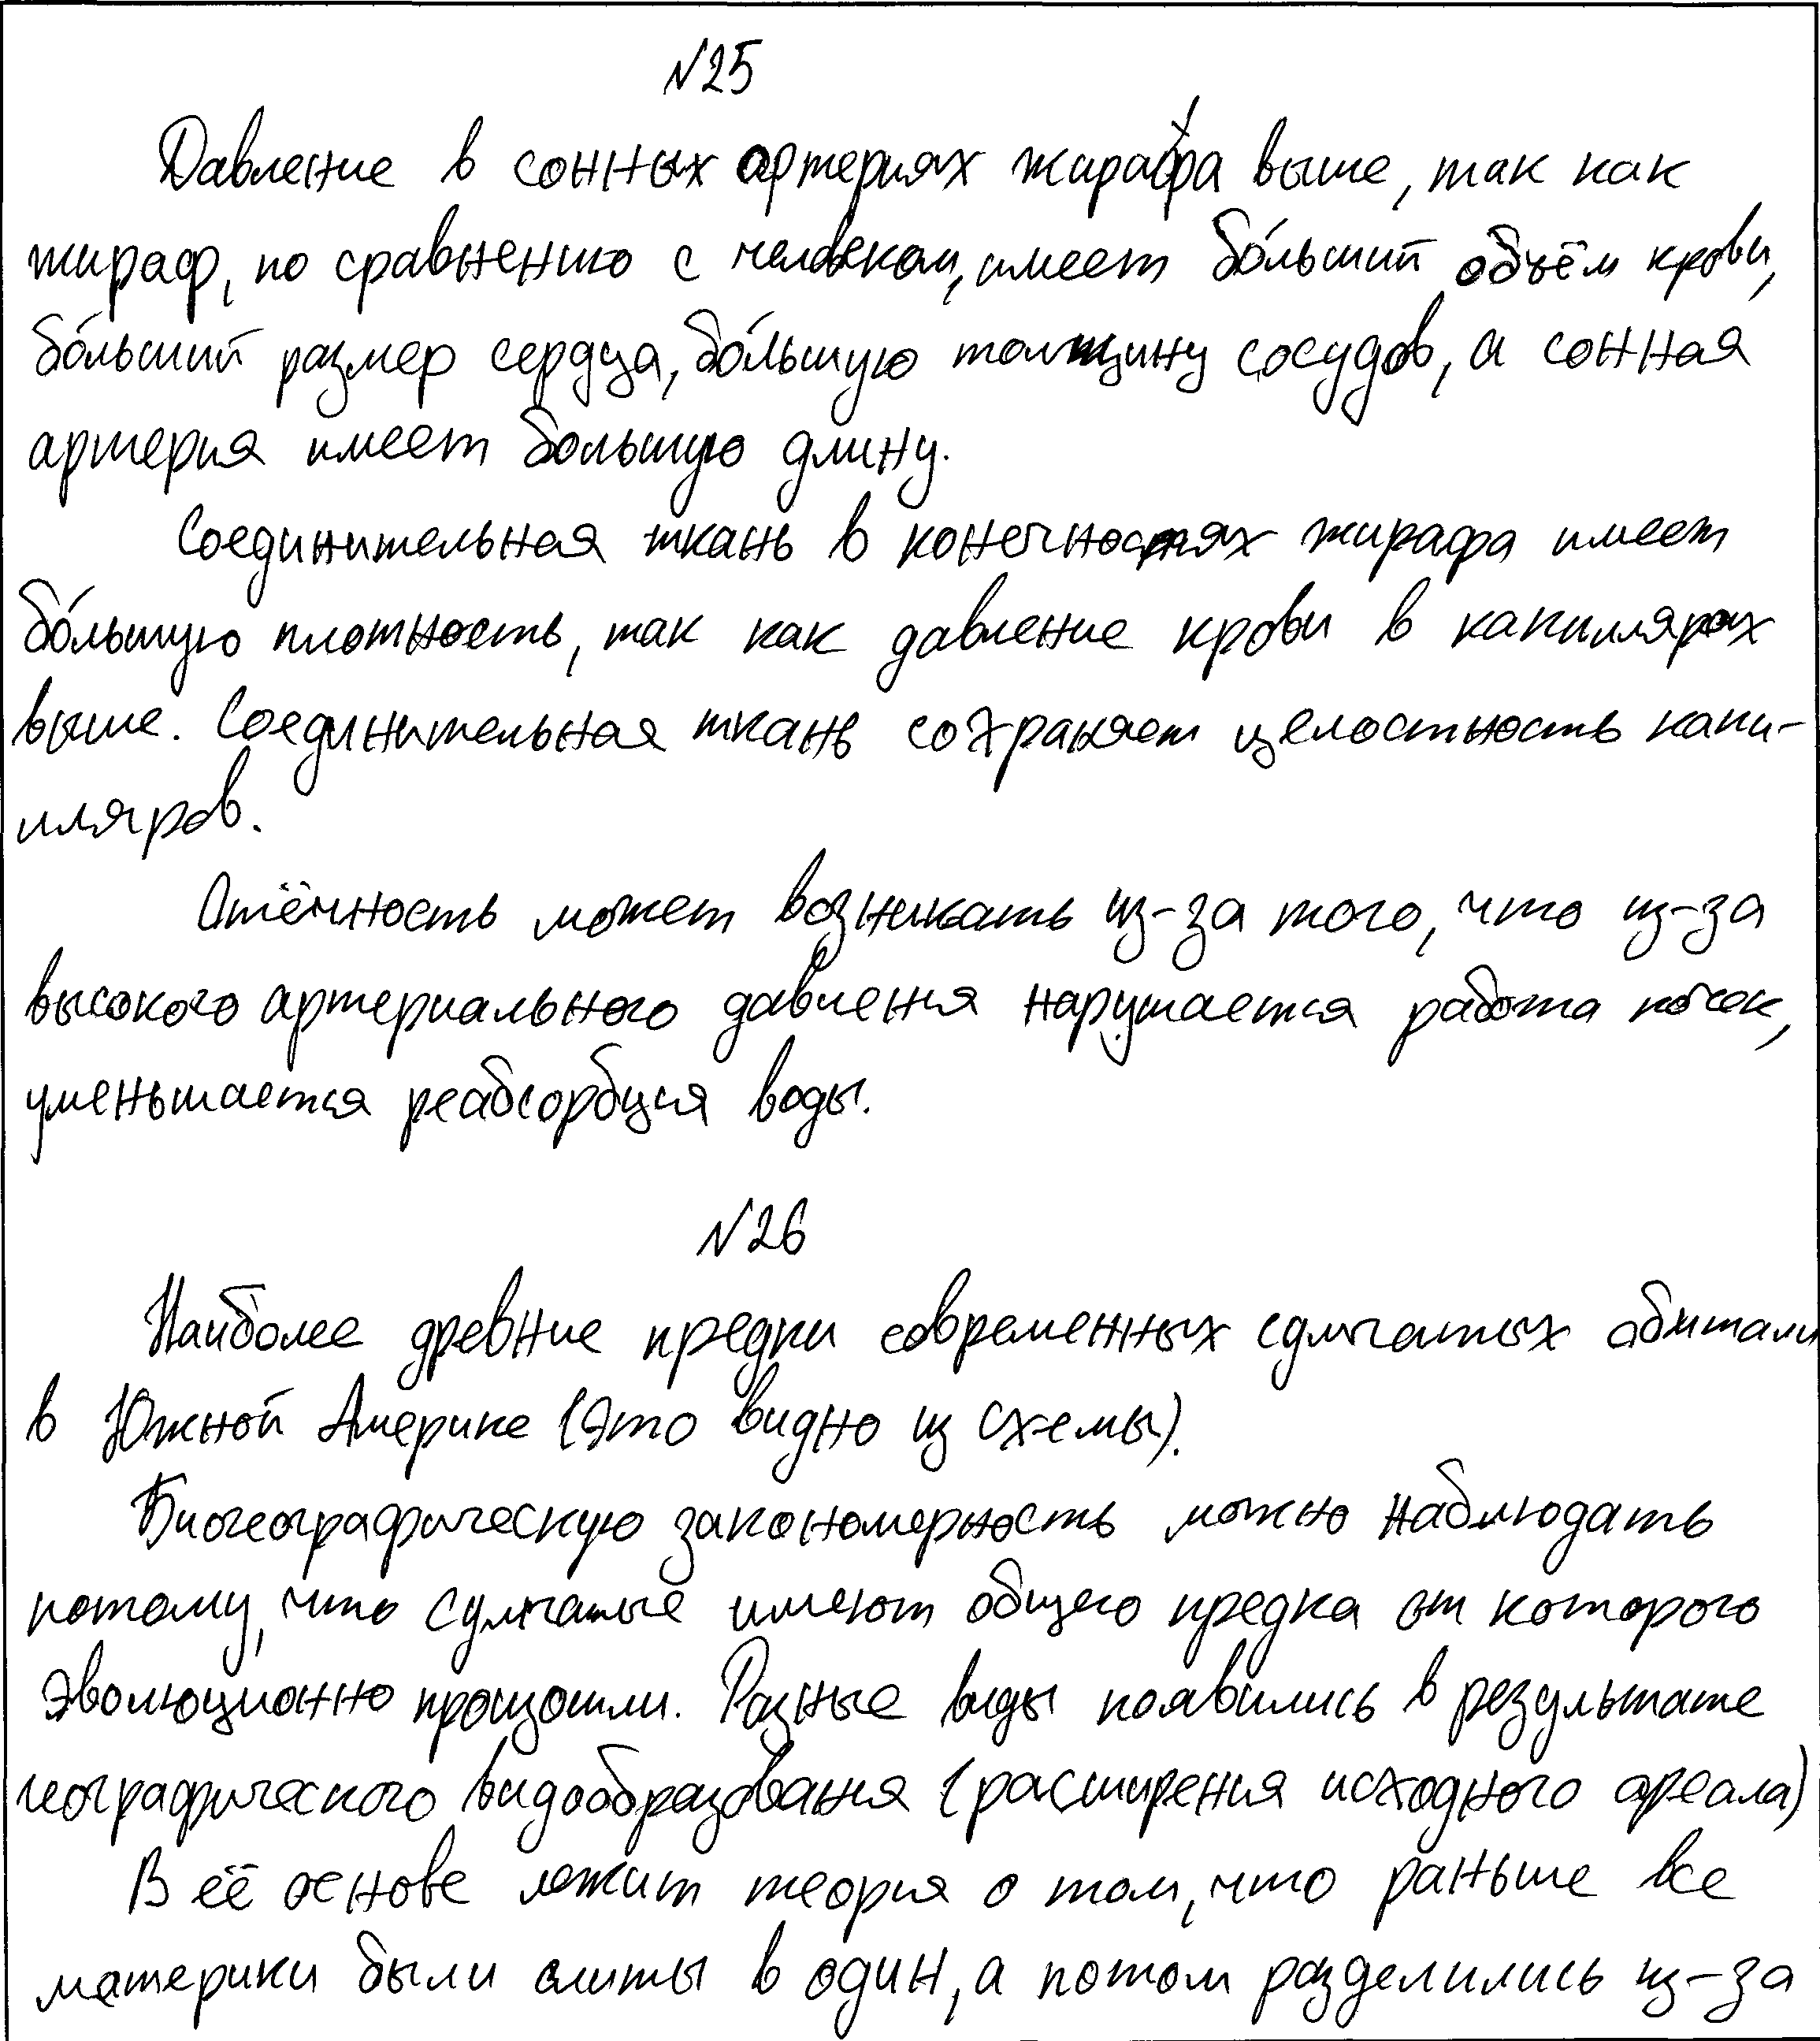 №25
Давление в сонных артериях жирафа выше, так как
жираф, по сравнению с человеком, имеет бо́льший объём крови,
бо́льший размер сердца, бо́льшую толщину сосудов, а сонная
артерия имеет большую длину.
Соединительная ткань в конечностях жирафа имеет
бо́льшую плотность, так как давление крови в капиллярах
выше. Соединительная ткань сохраняет целостность капи-
лляров.
Отёчность может возникать из-за того, что из-за
высокого артериального давления нарушается работа почек,
уменьшается реабсорбция воды.
№26
Наиболее древние предки современных сумчатых обитали
в Южной Америке (это видно из схемы).
Биогеографическую закономерность можно наблюдать
потому, что сумчатые имеют общего предка от которого
эволюционно произошли. Разные виды появились в результате
географического видообразования (расширения исходного ареала)
В её основе лежит теория о том, что раньше все
материки были слиты в один, а потом разделились из-за